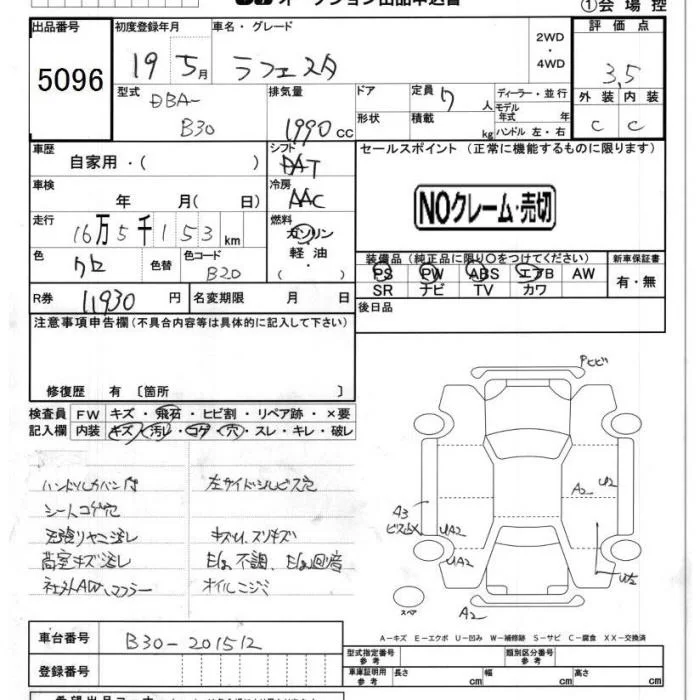 オークション出品申込書
①会場控
出品番号 5096
初度登録年月 19 5月
車名・グレード ラフェスタ
2WD・4WD
評価点 3.5
外装 C 内装 C
型式 DBA-B30
排気量 1990 CC
ドア
形状
定員 7人
積載 kg
ディーラー・並行
モデル年式 年
ハンドル 左・右
車歴 自家用・( )
シフト DAT
セールスポイント (正常に機能するものに限ります)
NOクレーム・売切
車検 年 月( 日)
冷房 AAC
走行 16万5千153km
燃料 ガソリン 軽油・( )
色 クロ
色替
色コード B20
装備品 (純正品に限り○をつけてください)
新車保証書
PS PW ABS エアB AW
SR ナビ TV カワ
有・無
R券 11930円
名変期限 月 日
後日品
注意事項申告欄(不具合内容等は具体的に記入して下さい)
修復歴 有 〔箇所 〕
検査員 FW キズ・飛石・ヒビ割・リペア跡・×要
記入欄 内装 キズ・汚レ・コゲ・穴・スレ・キレ・破レ
ハンドルカバン付
左サイドシルビス穴
シートコゲ穴
キズU、スリキズ
荷室キズ汚レ
E/g不調、E/g回音
社外AW、マフラー
オイルニジミ
Pヒビ
A2
U2
A3
UA2
UA2
U2
A2
スペア
A－キズ E－エクボ U－凹み W－補修跡 S－サビ C－腐食 XX－交換済
車台番号 B30-201512
型式指定番号 参考
類別区分番号 参考
登録番号
車庫証明用 参考 長さ 幅 高さ